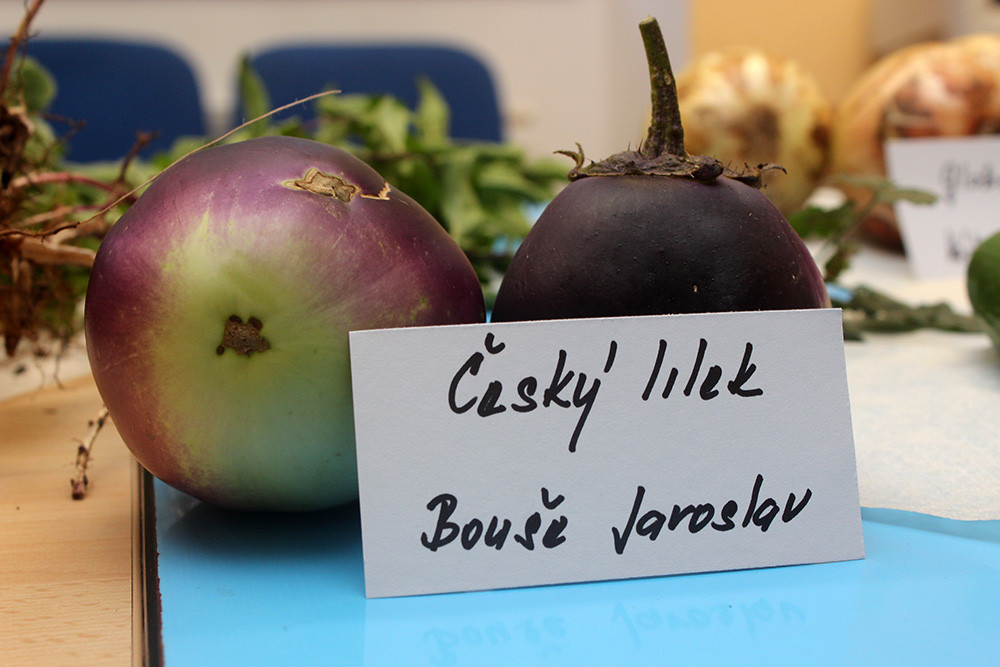 Český lilek
Bouše Jaroslav